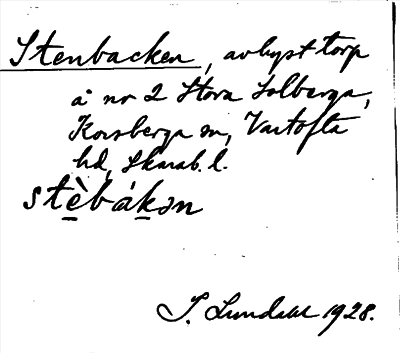 Stenbacken, avhyst torp
å nr 2 Stora Solberga,
Korsberga sn, Vartofta
hd, Skarab. l.
stèbákən
S. Lundahl 1928.